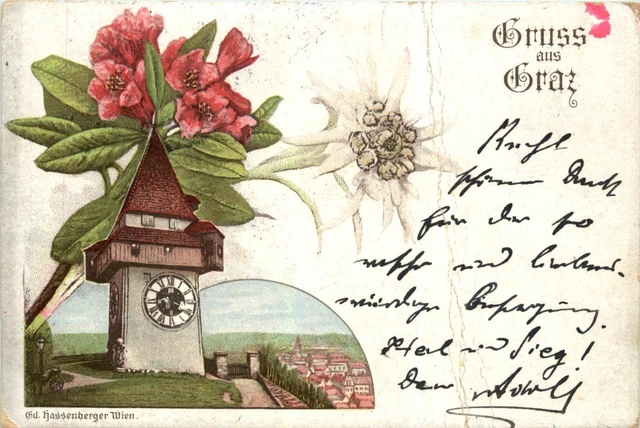 Gruss
aus
Graz
Recht
schönen Dank
für die so
rasche und liebens-
würdige Besorgung.
Heil und Sieg!
Dein Adolf
Ed. Hassenberger Wien.